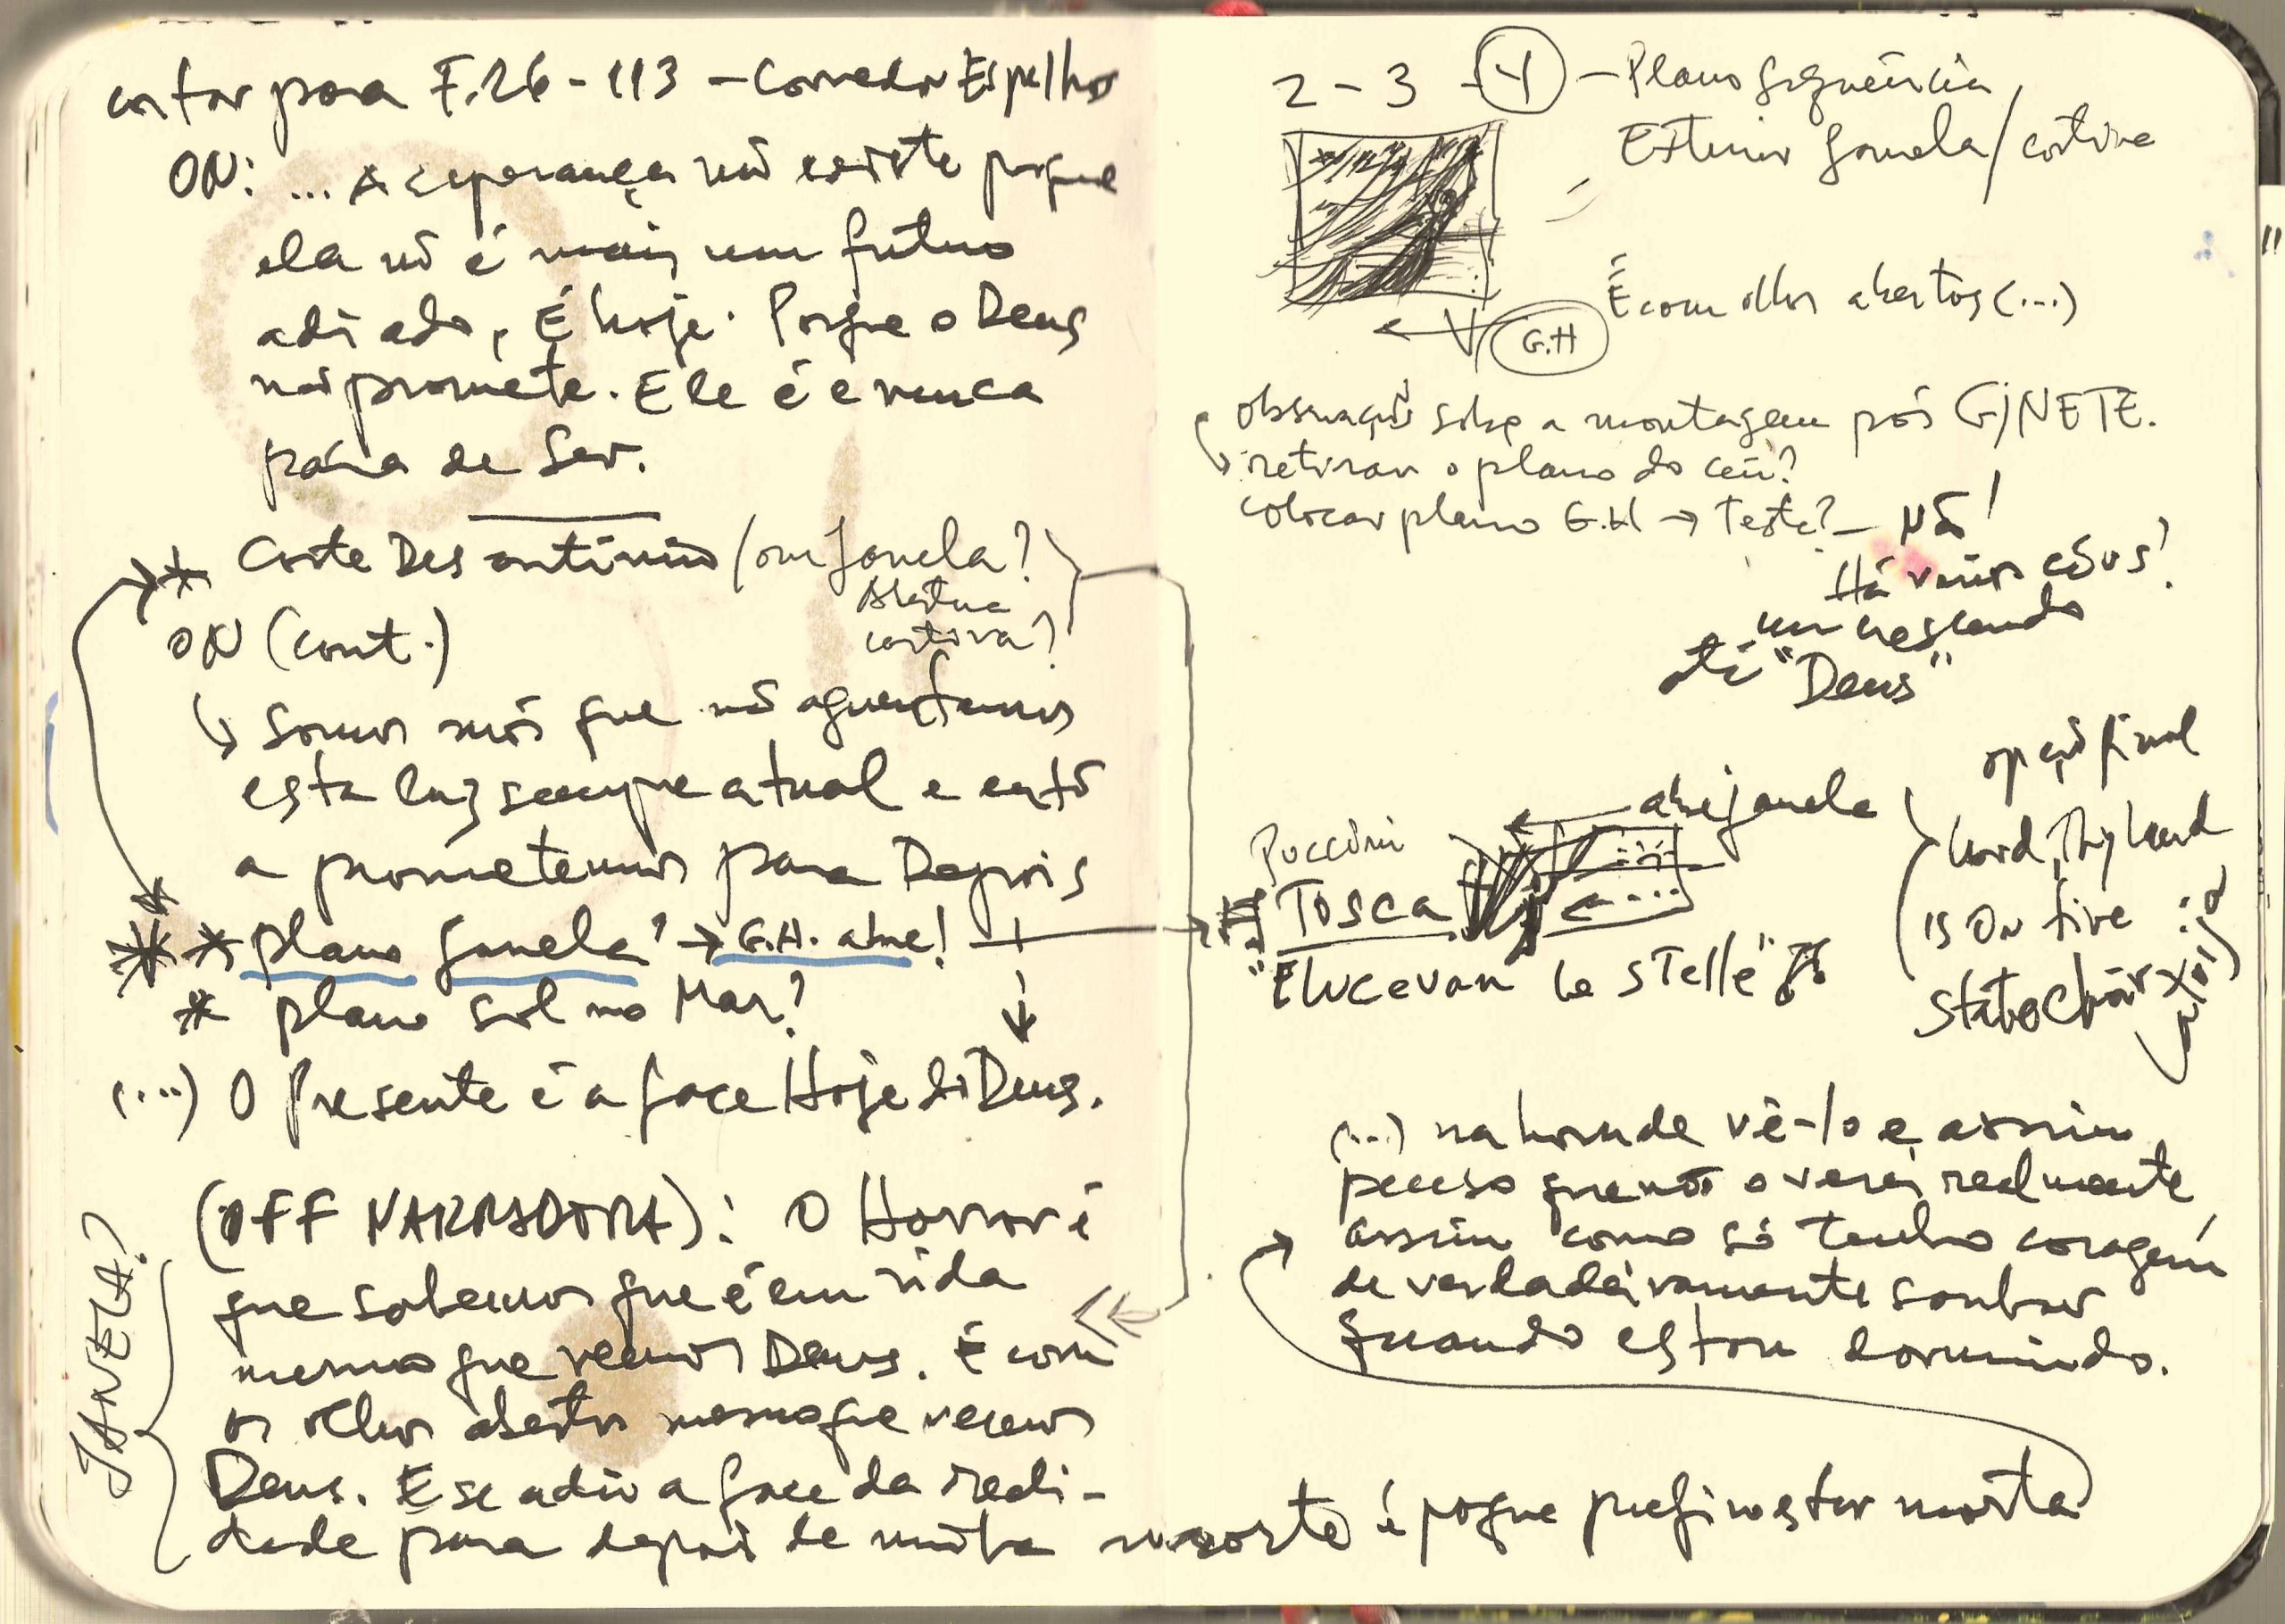 cortar para F.26-113 - Corredor Espelho
ON: ... A esperança não existe porque
ela não é mais um futuro
adiado, É hoje. Porque o Deus
não promete. Ele é e nunca
pára de Ser.
* Corte Descontínuo / ou janela?
Abertura
cortina?
ON (cont.)
Somos nós que não aguentamos
esta luz sempre atual e então
a prometemos para Depois
* * plano janela? → G.H. abre!
* plano sol no Mar?
(...) O Presente é a face Hoje do Deus.
JANELA?
(OFF NARRADORA): O Horror é
que sabemos que é em vida
mesmo que vemos Deus. É com
os olhos abertos mesmo que vemos
Deus. E se adio a face da reali-
dade para depois de minha morte é porque prefiro estar morta
2 - 3 - 4 - Plano Sequência
Exterior Janela/cortina
É com olhos abertos (...)
G.H
observação sobre a montagem pós GINETE.
retirar o plano do céu?
colocar plano G.H → Teste? - Não!
Há vários céus!
um crescendo
até "Deus"
opção final
abre janela
Puccini
TOSCA
"E lucevan le stelle"
Lord, Thy Land
is On fire
(...) na hora de vê-lo e assim
penso que não o verei realmente
assim como só tenho coragem
de verdadeiramente sonhar
quando estou dormindo.